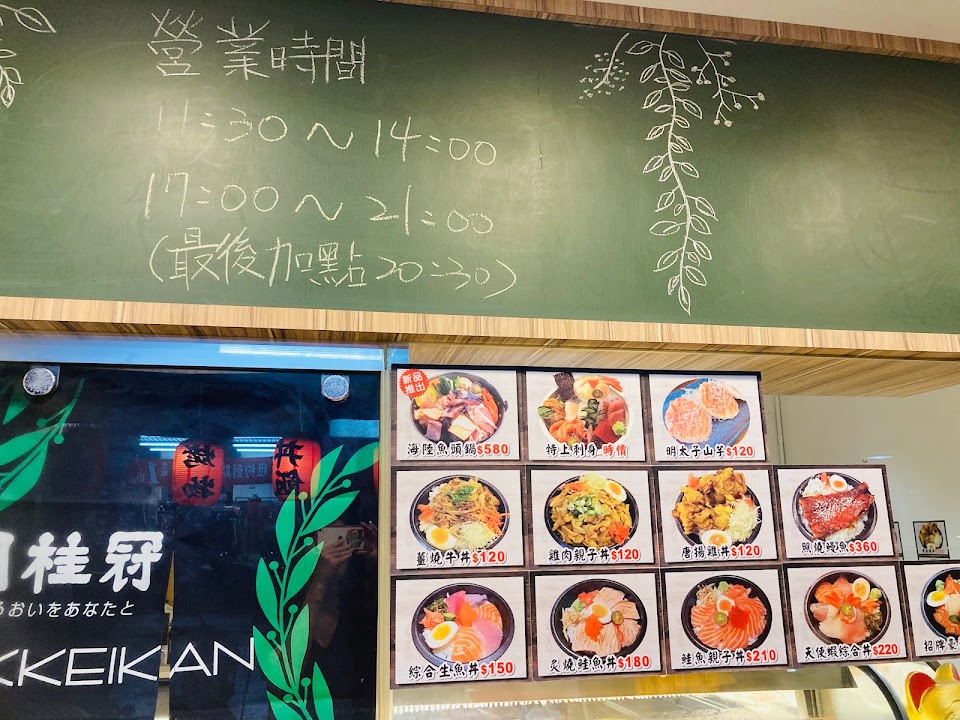 營業時間
11:30～14:00
17:00～21:00
(最後加點20:30)
新品
推出
海陸魚頭鍋$580
特上刺身 時價
明太子山芋$120
薑燒牛丼$120
雞肉親子丼$120
唐揚雞丼$120
照燒鰻魚$360
綜合生魚丼$150
炙燒鮭魚丼$180
鮭魚親子丼$210
天使蝦綜合丼$220
招牌豪
桂冠
おいをあなたと
KKEIKAN